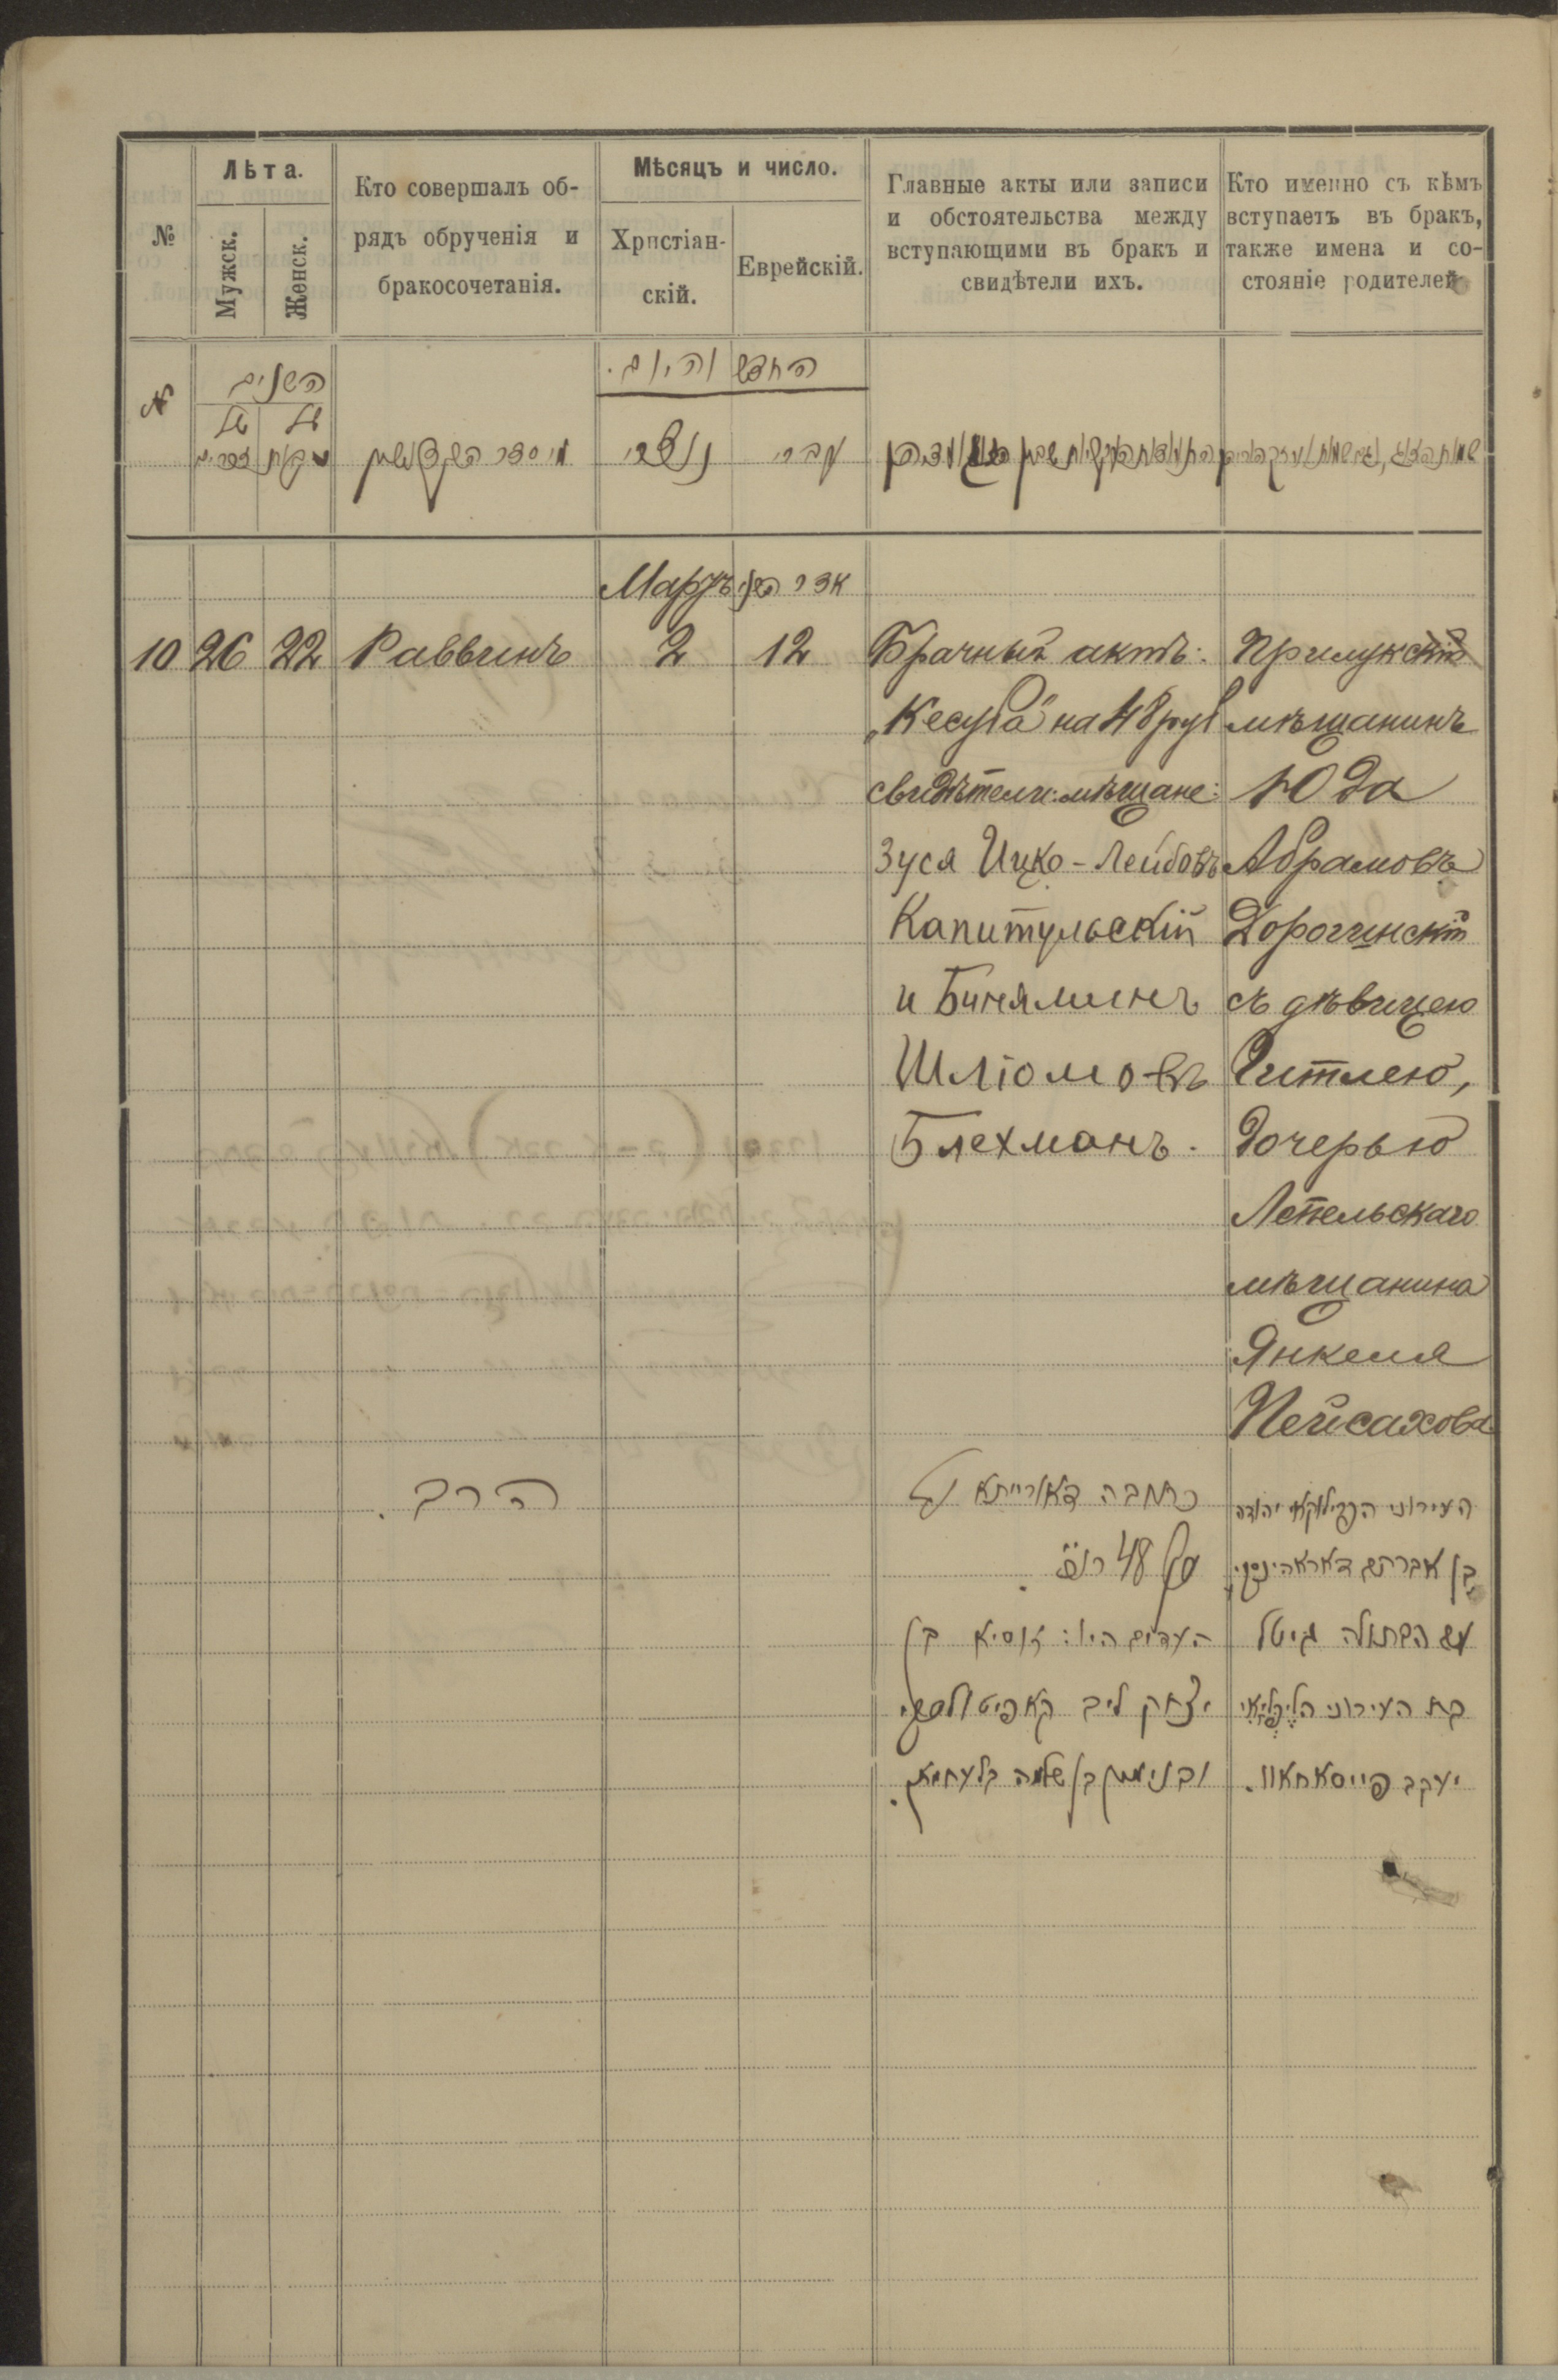 №
Лѣта.
Мужск.
Женск.
Кто совершалъ об-
рядъ обрученія и
бракосочетанія.
Мѣсяцъ и число.
Христіан-
скій.
Еврейскій.
Главные акты или записи
и обстоятельства между
вступающими въ бракъ и
свидѣтели ихъ.
Кто именно съ кѣмъ
вступаетъ въ бракъ,
также имена и со-
стояніе родителей
№
השנים
של
של
זכרים
נקבות
מי סדר הקדושין
החדש והיום.
נוצרי
עברי
Мартъ
אדר השני
10
26
22
Раввинъ
2
12
Брачный актъ:
„Кесуба" на 48 руб
свидѣтели: мѣщане:
Зуся Ицко-Лейбовъ
Капитульскій
и Биняминъ
Шліомовъ
Блехманъ.
Прилукскій
мѣщанинъ
Юда
Абрамовъ
Дорогинскій
съ дѣвицею
Гитлею,
дочерью
Лепельскаго
мѣщанина
Янкеля
Пейсахова
הרב.
כתובה דאורייתא
על 48 רו״כ.
העדים היו: זוסיא בן
יצחק ליב קאפיטולסקי
ובנימין בן שלמה בלעחמאן.
העירוני הפרילוקאי יהודה
בן אברהם דאראהינסקי
עם הבתולה גיטל
בת העירוני
יעקב פייסאחאוו.